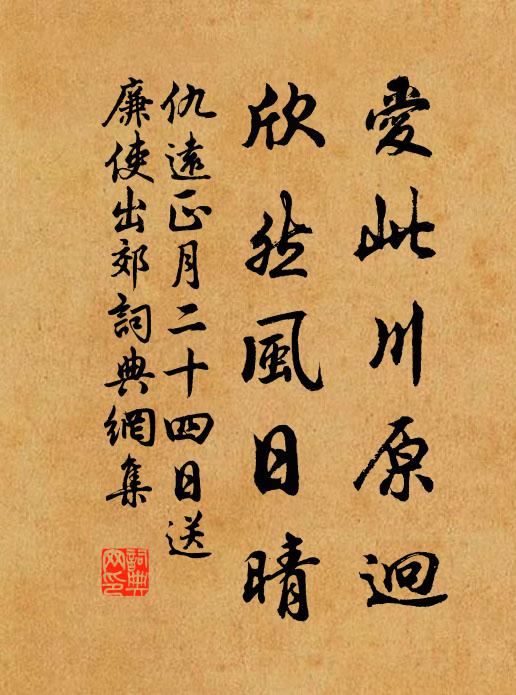 愛此川原迥
欣然風日晴
仇遠正月二十四日送
廉使出郊詞典網集
詞典網印